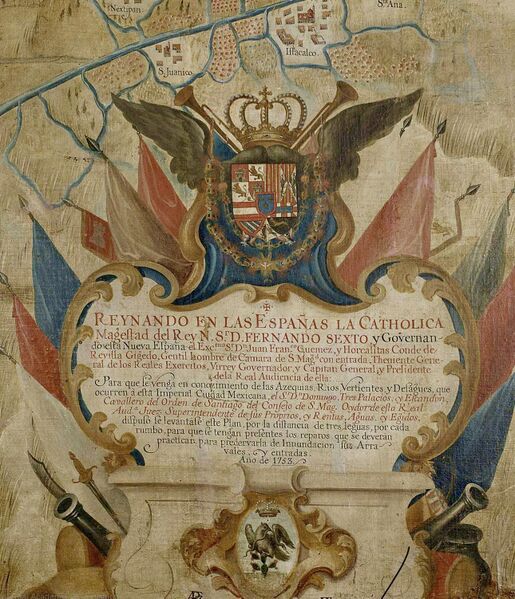 Nextipan
Sta Ana.
S. Juanico
Istacalco.
REYNANDO EN LAS ESPAÑAS LA CATHOLICA
Magestad del Rey N. Sr. D. FERNANDO SEXTO, y Governan-
do esta Nueva España el Exmo. Sr. Dn. Juan Franco. Guemez, y Horcasitas Conde de
Revilla Gigedo, Gentil hombre de Camara de S. Magd. con entrada, Theniente Gene-
ral de los Reales Exercitos, Virrey Governador, y Capitan General, y Presidente
de la Real Audiencia de esta:
Para que se venga en conozimiento de las Azequias, Rios, Vertientes, y Desagues, que
ocurren a esta Imperial Ciudad Mexicana, el Sr. Dn. Domingo, Tres Palacios, y Escandon,
Cavallero del Orden de Santiago del Consejo de S. Mag. Oydor de esta Real
Auda. Juez, Superintendente de sus Proprios, y Rentas, Aguas, y Egidos,
dispuso se levantase este Plan, por la distancia de tres leguas, por cada
rumbo, para que se tengan presentes los reparos que se deveran
practicar para preservarla de Inundacion sus Arra-
vales, y entradas.
Año de 1753.